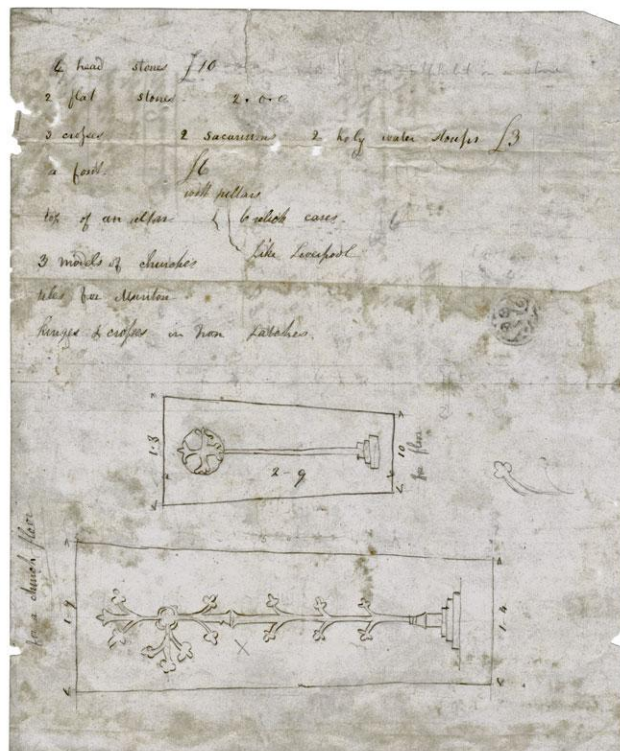 6 head stones £10 on a stone
2 flat stones 2.0.0
3 crosses 2 sacrariums 2 holy water stoups £3
a font £6
with pillars
top of an altar 6 which cares
like Liverpool
3 models of churches
tiles for Munton
hinges & crosses in iron latches
1.3
2-9
10
for floor
for a church floor
1.9
1.4